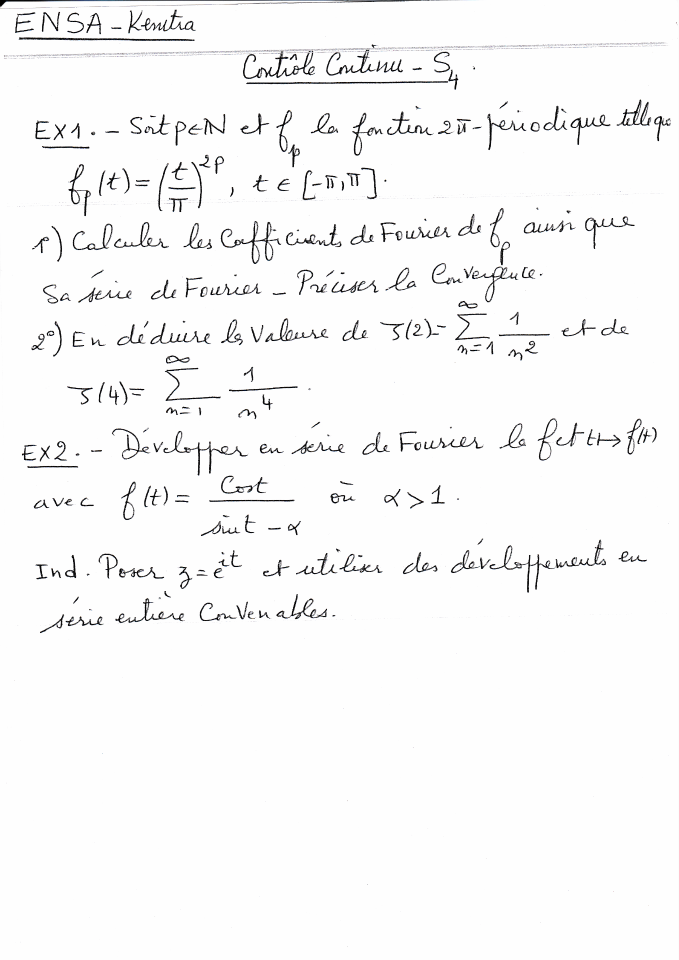 ENSA - Kenitra
Contrôle Continu - S₄.
EX1. - Soit p∈ℕ et f_p la fonction 2π-périodique telle que
f_p(t) = (t/π)^{2p}, t ∈ [-π, π].
1°) Calculer les Coefficients de Fourier de f_p ainsi que
Sa série de Fourier - Préciser la Convergence.
2°) En déduire les Valeurs de ζ(2) = ∑_{n=1}^{∞} 1/n² et de
ζ(4) = ∑_{n=1}^{∞} 1/n⁴.
EX2. - Développer en série de Fourier la fct t ↦ f(t)
avec f(t) = Cost / (sint - α) où α > 1.
Ind. Poser z = e^{it} et utiliser des développements en
série entière Convenables.